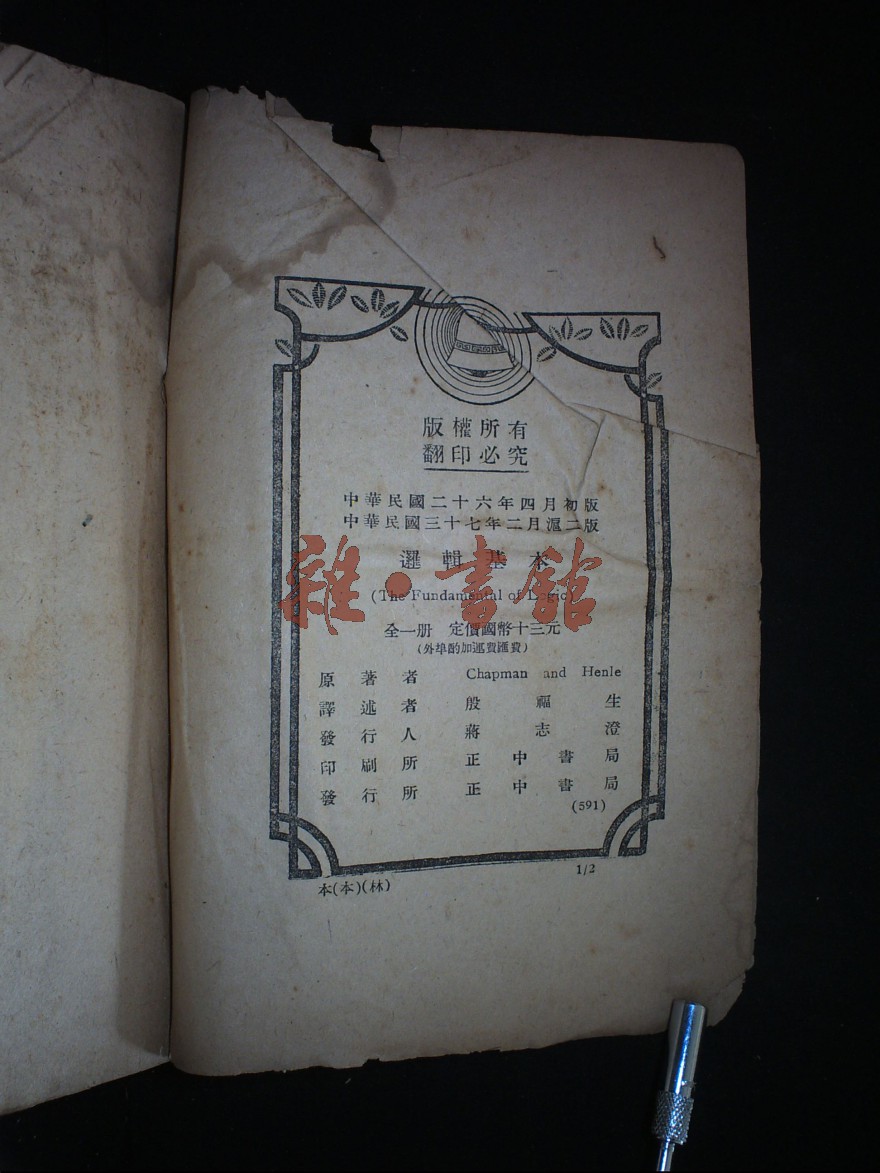 版權所有
翻印必究
中華民國二十六年四月初版
中華民國三十七年二月滬二版
邏輯基本
(The Fundamental of Logic)
全一册 定價國幣十三元
(外埠酌加運費匯費)
原著者 Chapman and Henle
譯述者 殷福生
發行人 蔣志澄
印刷所 正中書局
發行所 正中書局
(591)
1/2
本(本)(林)
雜·書館